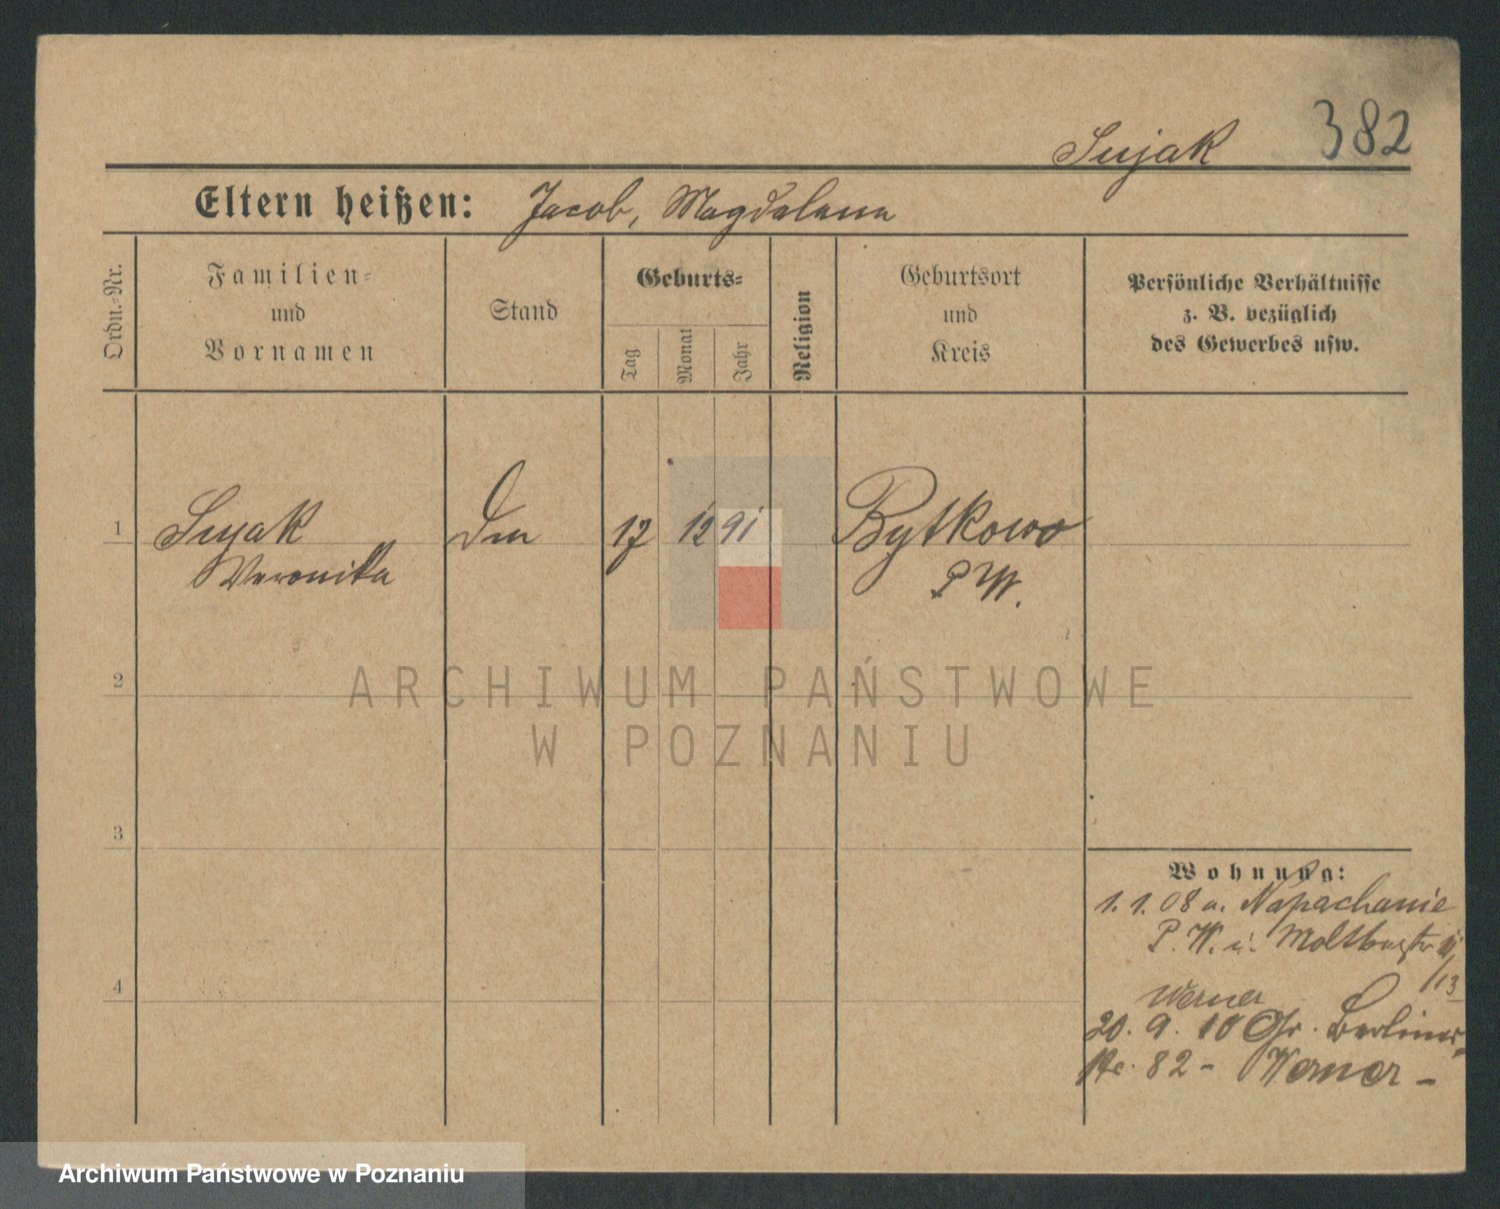 Sujak 382
Eltern heißen: Jacob, Magdalena
Ordn.-Nr.
Familien-
und
Vornamen
Stand
Geburts-
Tag
Monat
Jahr
Religion
Geburtsort
und
Kreis
Persönliche Verhältnisse
z. B. bezüglich
des Gewerbes usw.
1 Sujak 17 12 91 Bytkowo
Veronika P. W.
2
ARCHIWUM PAŃSTWOWE
W POZNANIU
3
Wohnung:
1. 1. 08 a. Napachanie
P. W. i.
4
/13
Werner
20. 9. 10 Gr. Berliner-
82 - Werner -
Archiwum Państwowe w Poznaniu